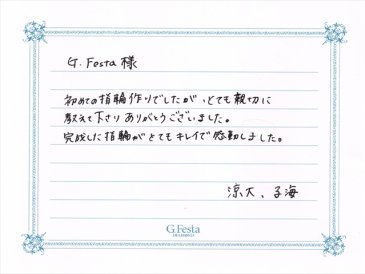 G. Festa 様
初めての指輪作りでしたが、とても親切に
教えて下さり ありがとうございました。
完成した指輪がとてもキレイで感動しました。
涼大、子海
G.Festa